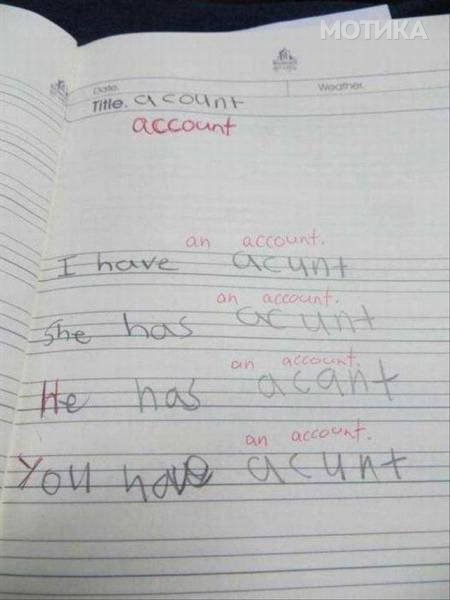 МОТИКА
Date.
Weather.
Title. acount
account
an account.
I have acunt
an account.
She has acunt
an account.
He has acant
an account.
You have acunt